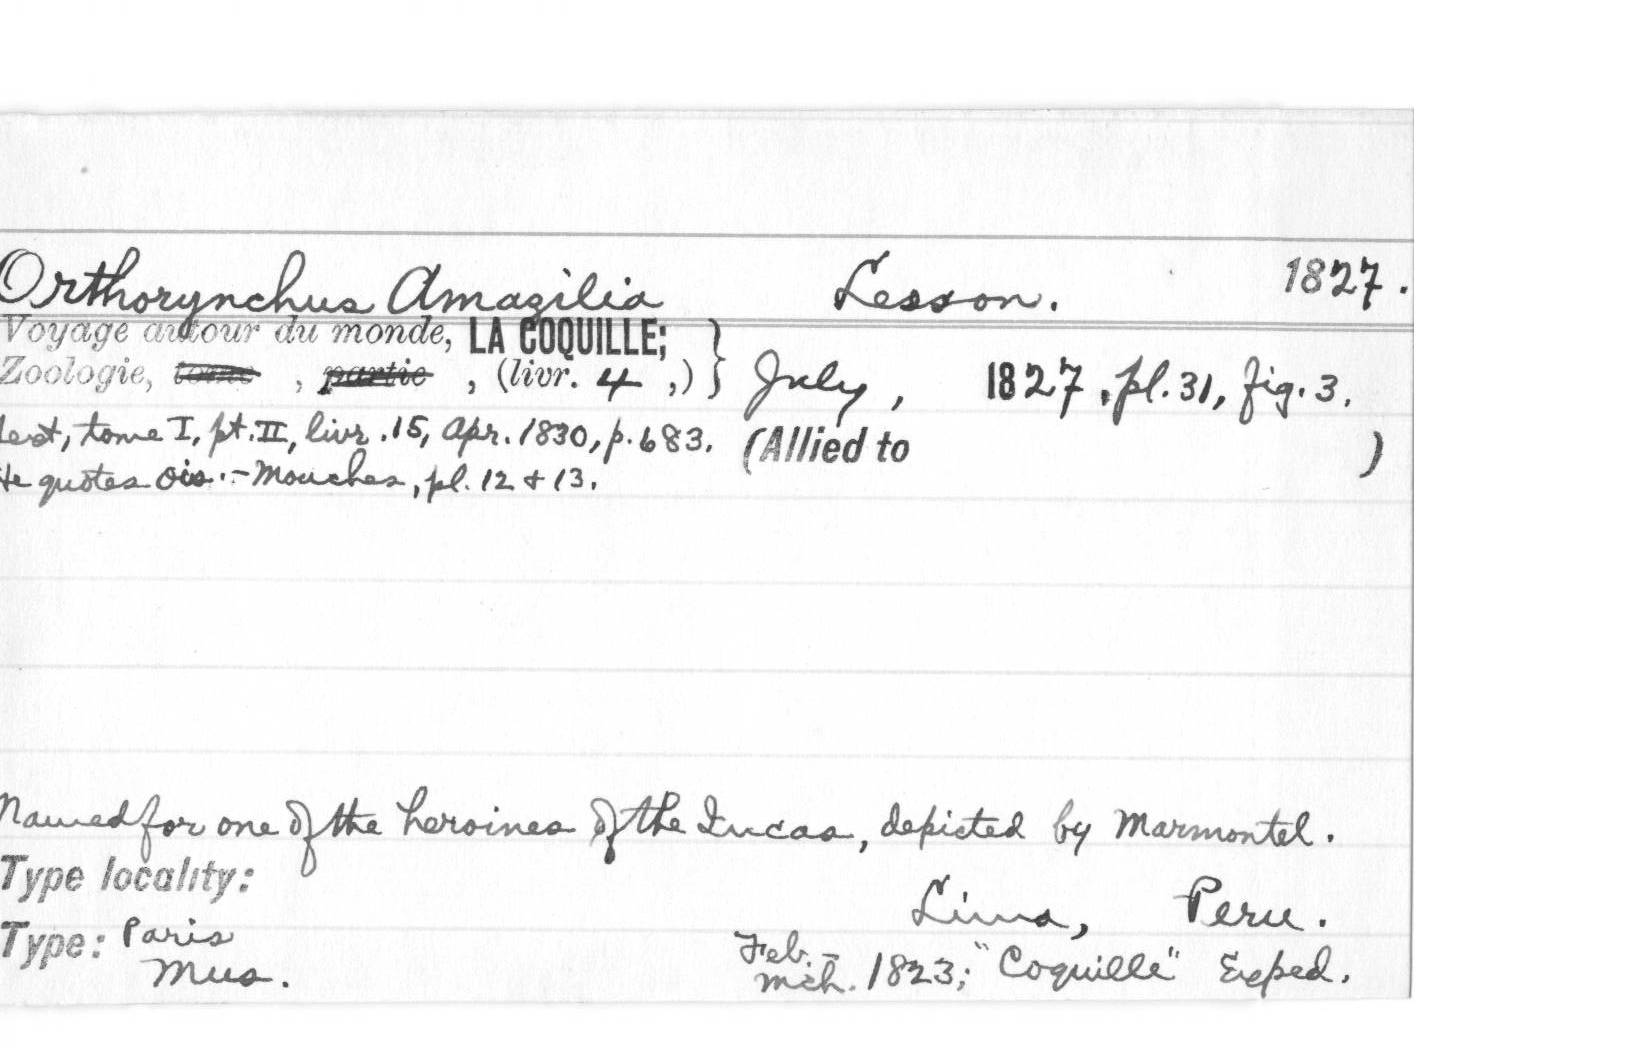 Orthorynchus Amazilia Lesson. 1827.
Voyage autour du monde, LA COQUILLE; }
Zoologie, tome , partie , (livr. 4 ,) } July, 1827, pl. 31, fig. 3.
text, tome I, pt. II, livr. 15, Apr. 1830, p. 683. (Allied to )
He quotes Ois.-Mouches, pl. 12 + 13.
Named for one of the heroines of the Incas, depicted by Marmontel.
Type locality:
Lima, Peru.
Type: Paris
Mus.
Feb.-
Mch. 1823; "Coquille" Exped.